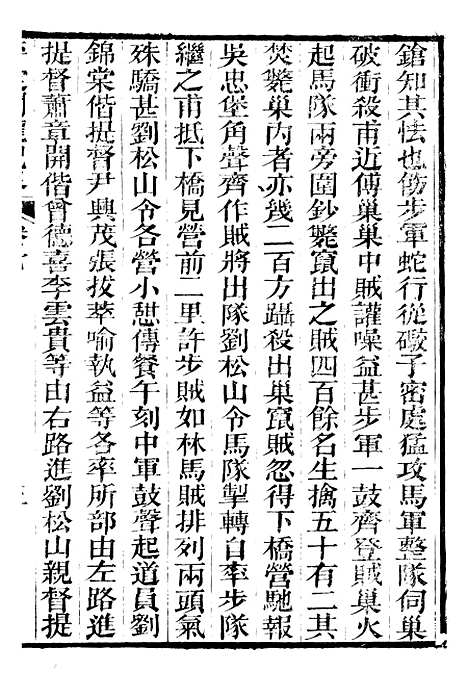 鎗知其怯也飭步軍蛇行從礮子密處猛攻馬軍整隊伺巢
破衝殺甫近傅巢巢中賊讙噪益甚步軍一鼓齊登賊巢火
起馬隊兩旁圍鈔斃竄出之賊四百餘名生擒五十有二其
焚斃巢內者亦幾二百方躡殺出巢竄賊忽得下橋營馳報
吳忠堡角聲齊作賊將出隊劉松山令馬隊掣轉自率步隊
繼之甫抵下橋見營前二里許步賊如林馬賊排列兩頭氣
殊驕甚劉松山令各營小憩傳餐午刻中軍鼓聲起道員劉
錦棠偕提督尹興茂張拔萃喻執益等各率所部由左路進
提督蕭章開偕曾德喜李雲貴等由右路進劉松山親督提